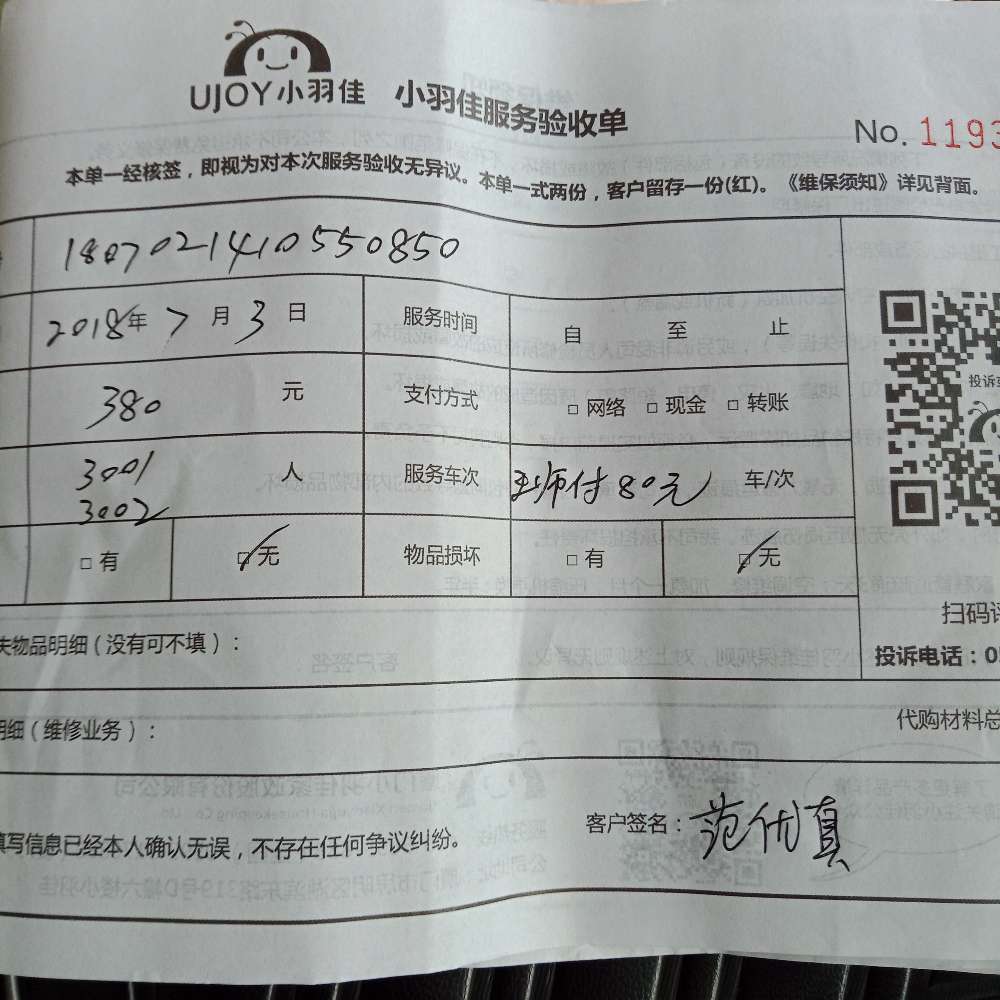 UJOY小羽佳 小羽佳服务验收单
No. 1193
本单一经核签，即视为对本次服务验收无异议。本单一式两份，客户留存一份(红)。《维保须知》详见背面。
1807021410550850
2018年7月3日 服务时间 自 至 止
380 元 支付方式 □ 网络 □ 现金 □ 转账
投诉
3001 人 服务车次 师付80元 车/次
3002
□ 有 □ 无 物品损坏 □ 有 □ 无
扫码评
失物品明细（没有可不填）：
投诉电话：0
明细（维修业务）：
代购材料总
填写信息已经本人确认无误，不存在任何争议纠纷。
客户签名：范优真